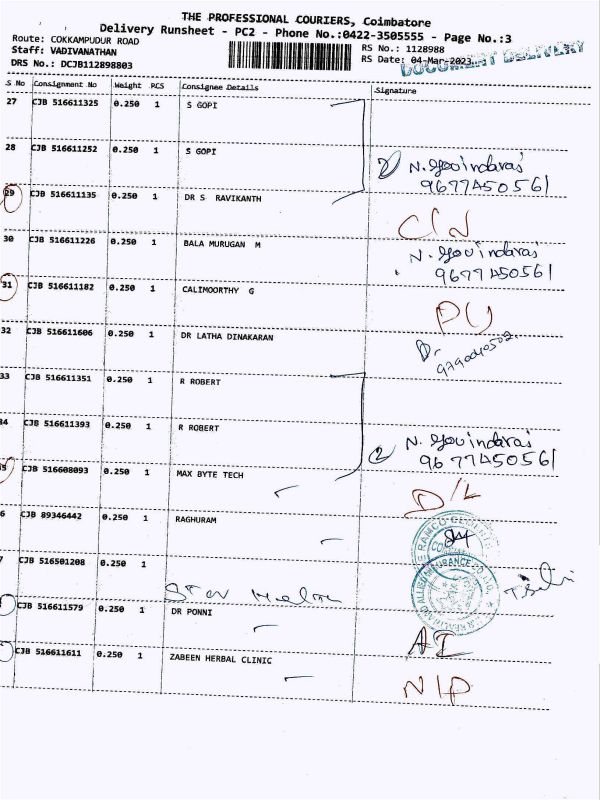 THE PROFESSIONAL COURIERS, Coimbatore
Delivery Runsheet - PC2 - Phone No.:0422-3505555 - Page No.:3
Route: COKKAMPUDUR ROAD
RS No.: 1128988
Staff: VADIVANATHAN
RS Date: 04-Mar-2023
DOCUMENT DELIVERY
DRS No.: DCJB112898803
S.No Consignment No Weight PCS Consignee Details Signature
27 CJB 516611325 0.250 1 S GOPI
28 CJB 516611252 0.250 1 S GOPI
2 N. Govindaraj
9677450561
29 CJB 516611135 0.250 1 DR S RAVIKANTH
C/N
30 CJB 516611226 0.250 1 BALA MURUGAN M
N. Govindaraj
9677450561
31 CJB 516611182 0.250 1 CALIMOORTHY G
32 CJB 516611606 0.250 1 DR LATHA DINAKARAN
33 CJB 516611351 0.250 1 R ROBERT
34 CJB 516611393 0.250 1 R ROBERT
2 N. Govindaraj
9677450561
35 CJB 516608093 0.250 1 MAX BYTE TECH
D/L
6 CJB 89346442 0.250 1 RAGHURAM
7 CJB 516501208 0.250 1
CJB 516611579 0.250 1 DR PONNI
CJB 516611611 0.250 1 ZABEEN HERBAL CLINIC